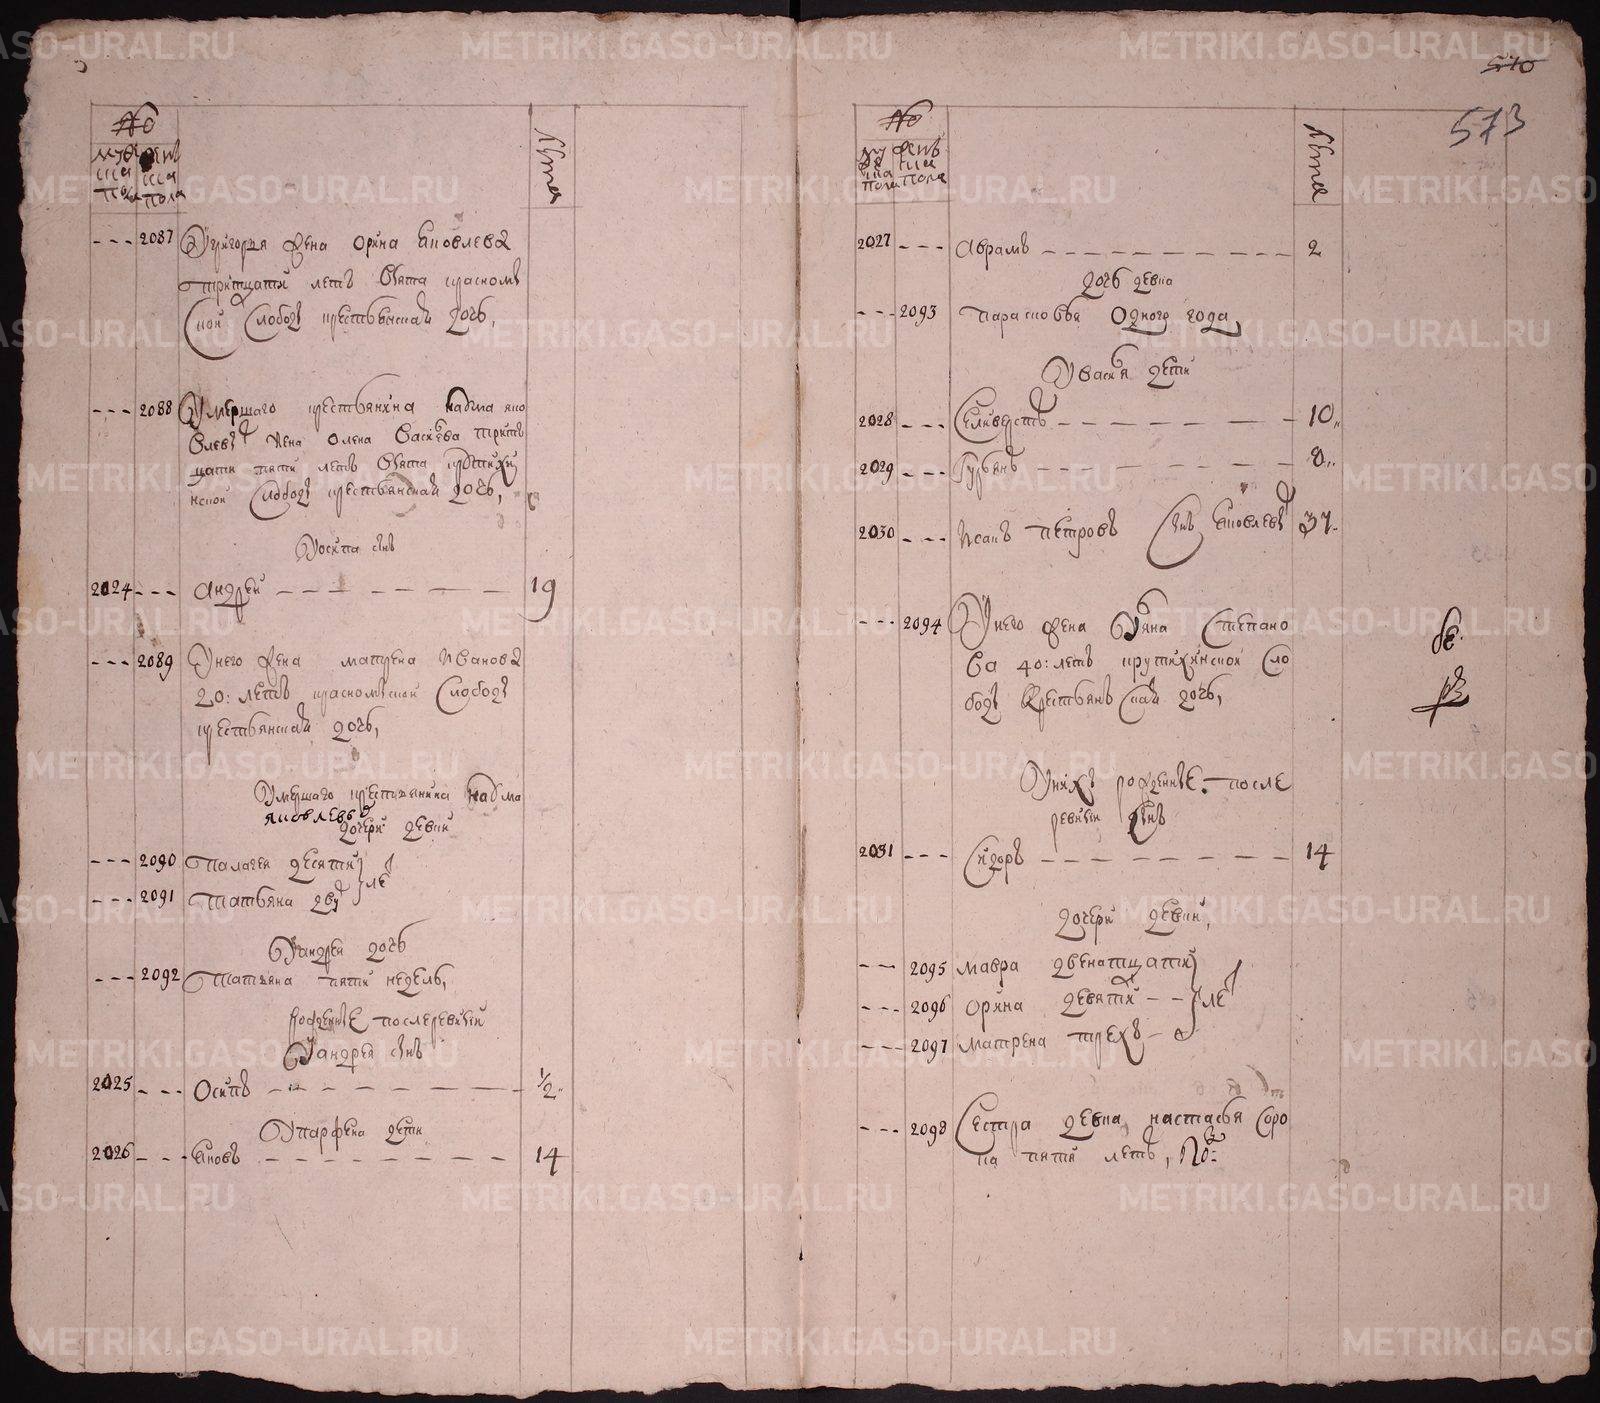 №
мужеска пола
женска пола
лѣта
2087 Угригорья жена орина Яковлева
тритцати летъ взята красномы
ской слободы крестьянская дочь,
2088 Умершаго крестьянина
влева жена олена Васильева трит
цати пяти летъ взята крутихи
нской слободы крестьянская дочь,
Уосипа сынъ
2024 андрей 19
2089 Унего жена матрена Иванова
20: летъ слободы
крестьянская дочь,
Умершаго крестьянина
яковлева
дочери девки
2090 Палагея десяти
2091 Татьяна дву ле
Уандрея дочь
2092 Татьяна пяти недель,
рожденные послеревизии
Уандрея сынъ
2025 Осипъ 1/2
Упарфена дети
2026 Яковъ 14
510
573
№
мужеска пола
женска пола
лѣта
2027 Аврамъ 2
дочь девка
2093 Парасковья Одного года,
Уваски дети
2028 Селиверстъ 10
2029 Гурьянъ 8
2030 Исакъ петровъ сынъ Яковлевъ 37
2094 Унего жена Ульяна Степано
ва 40: летъ крутихинской сло
боды крестьянская дочь,
Унихъ рожденные после
ревизии сынъ
2031 Сидоръ 14
дочери девки,
2095 мавра двенатцати
2096 орина девяти ле
2097 матрена трехъ
2098 Сестра девка, настасья соро
ка пяти летъ,